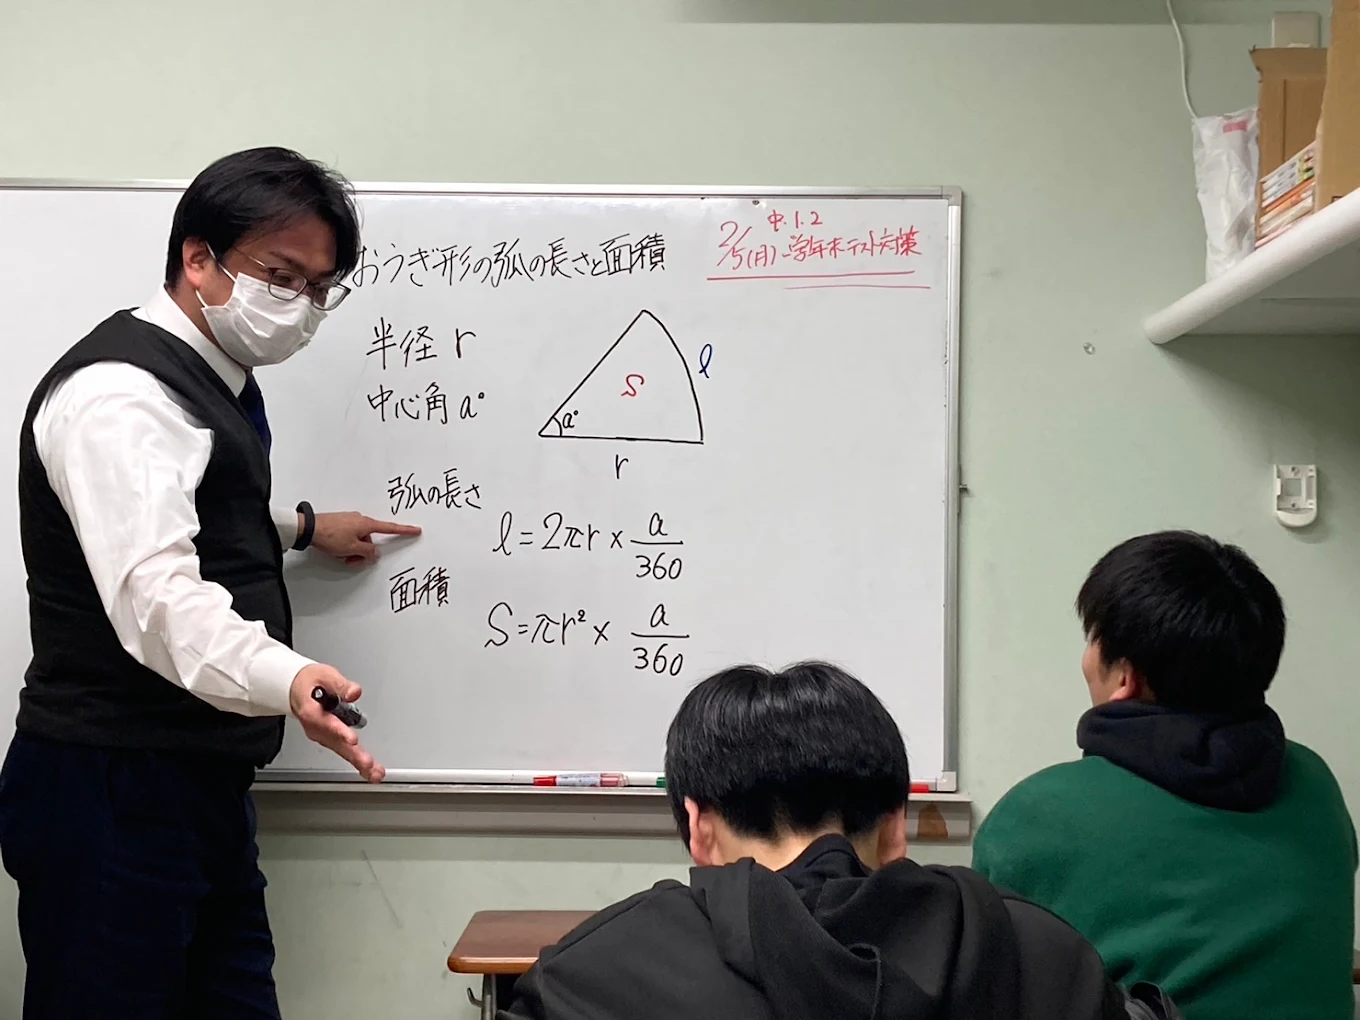 おうぎ形の弧の長さと面積
中.1.2
2/5(月)~学年末テスト対策
半径 r
中心角 a°
l
S
a°
r
弧の長さ
l=2πr×a/360
面積
S=πr²×a/360